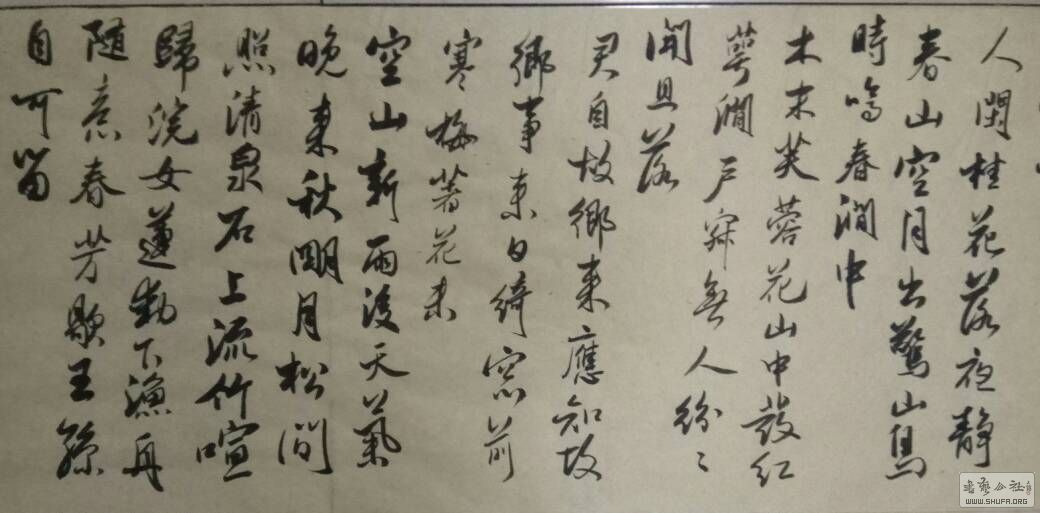 人閑桂花落夜靜
春山空月出驚山鳥
時鳴春澗中
木末芙蓉花山中發紅
萼澗戶寂無人紛〻
開且落
君自故鄉来應知故
鄉事来日綺窓前
寒梅著花未
空山新雨後天氣
晚来秋明月松間
照清泉石上流竹喧
歸浣女蓮動下漁舟
随意春芳歇王孫
自可留
WWW.SHUFA.ORG